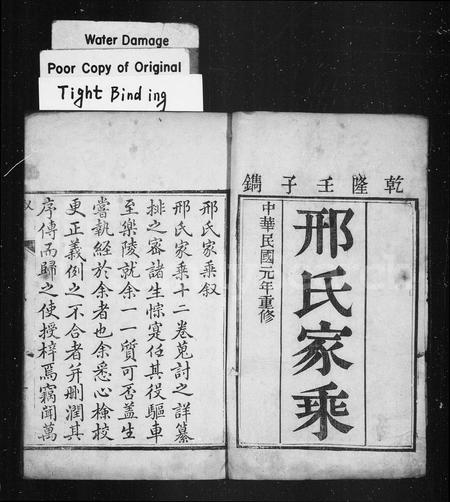 Water Damage
Poor Copy of Original
Tight Binding
乾隆壬子鐫
邢氏家乘
中華民國元年重修
邢氏家乘叙
邢氏家乘十二卷蒐討之詳纂
排之審諸生惊寔任其役驅車
至樂陵就余一一質可否蓋生
嘗執經於余者也余悉心檢校
更正義例之不合者并刪潤其
序傳而歸之使授梓焉竊聞萬